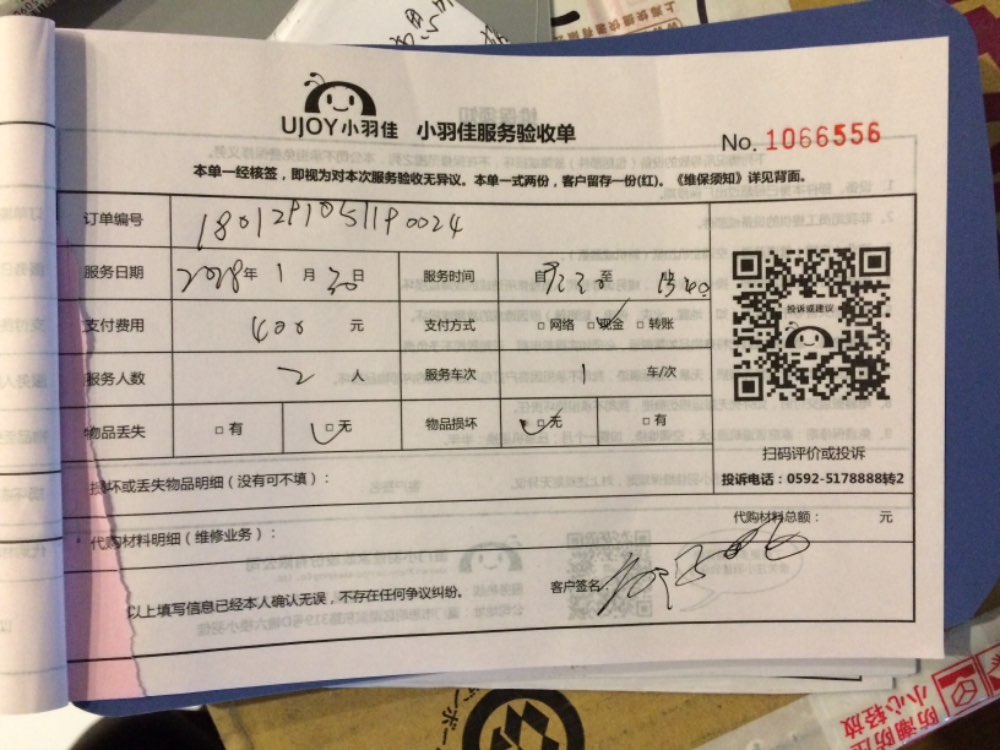 UJOY小羽佳 小羽佳服务验收单
No. 1066556
本单一经核签，即视为对本次服务验收无异议。本单一式两份，客户留存一份(红)。《维保须知》详见背面。
订单编号 180129105119 0024
服务日期 2018年 1月 30日 服务时间 自 至
支付费用 400 元 支付方式 □网络 □现金 □转账
服务人数 2 人 服务车次 1 车/次
物品丢失 □有 □无 物品损坏 □无 □有
投诉或建议
扫码评价或投诉
投诉电话：0592-5178888转2
损坏或丢失物品明细（没有可不填）：
代购材料总额： 元
代购材料明细（维修业务）：
以上填写信息已经本人确认无误，不存在任何争议纠纷。
客户签名
防潮防压
小心轻放